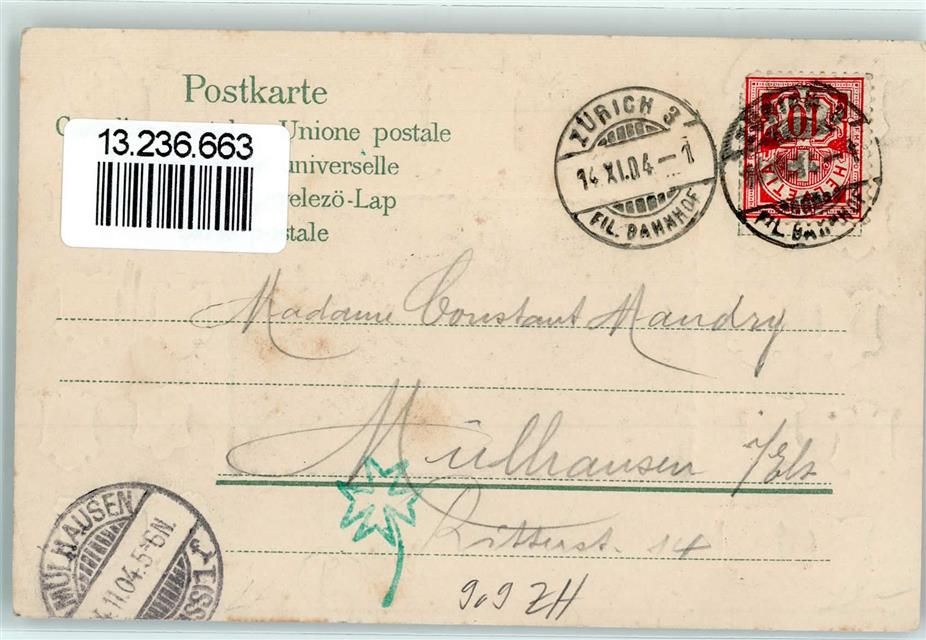 Postkarte
Unione postale
13.236.663
universelle
velezö-Lap
stale
ZÜRICH 3
14.XI.04.–1
FIL. BAHNHOF
10
HELVETIA
FIL. BAHNHOF
Madame Constant Mandry
Mülhausen i/Els
Ritterst. 14
MÜLHAUSEN
.11.04.5-6N.
9.9 ZH